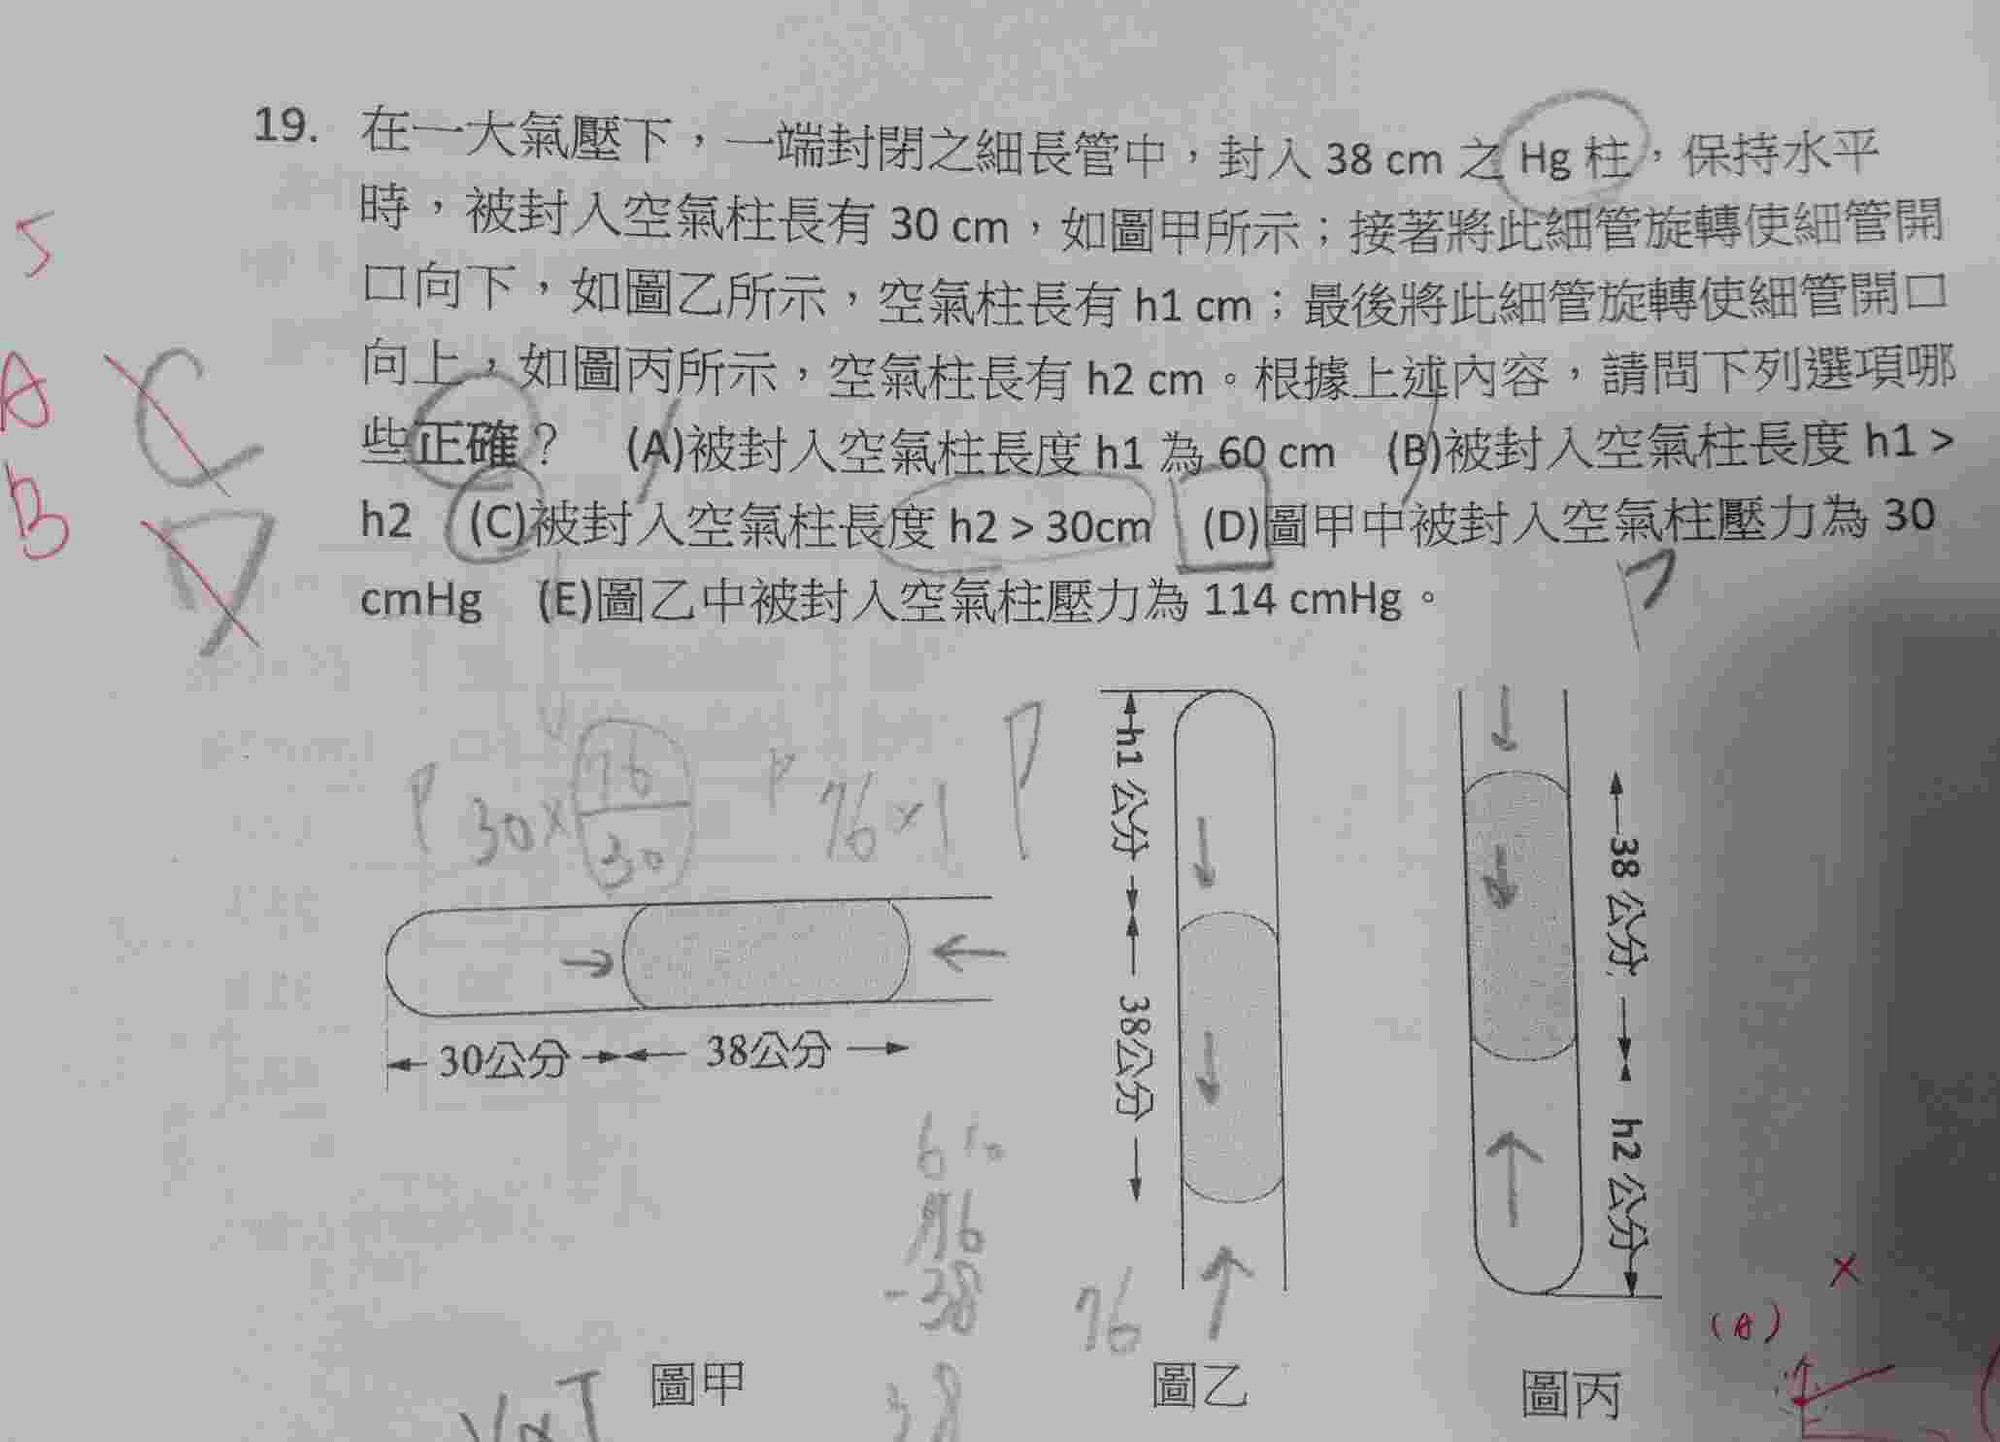 19. 在一大氣壓下，一端封閉之細長管中，封入 38 cm 之 Hg 柱，保持水平
時，被封入空氣柱長有 30 cm，如圖甲所示；接著將此細管旋轉使細管開
口向下，如圖乙所示，空氣柱長有 h1 cm；最後將此細管旋轉使細管開口
向上，如圖丙所示，空氣柱長有 h2 cm。根據上述內容，請問下列選項哪
些正確？ (A)被封入空氣柱長度 h1 為 60 cm (B)被封入空氣柱長度 h1 >
h2 (C)被封入空氣柱長度 h2 > 30cm (D)圖甲中被封入空氣柱壓力為 30
cmHg (E)圖乙中被封入空氣柱壓力為 114 cmHg。
5
A
B
C
D
P
P 30 × 76/30
P 76 × 1
P
h1 公分
38公分
38 公分
h2 公分
30公分
38公分
76
-38
38
76
×
(A)
圖甲
圖乙
圖丙